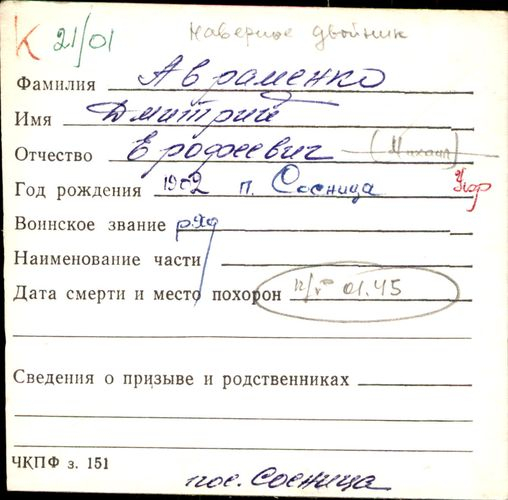 К 21/01 Наверное двойник
Фамилия Авраменко
Имя Дмитрий
Отчество Ерофеевич (Михайл)
Год рождения 1902 п. Сосница Укр
Воинское звание ряд
Наименование части
Дата смерти и место похорон п/б 01.45
Сведения о призыве и родственниках
ЧКПФ з. 151
пос. Сосница